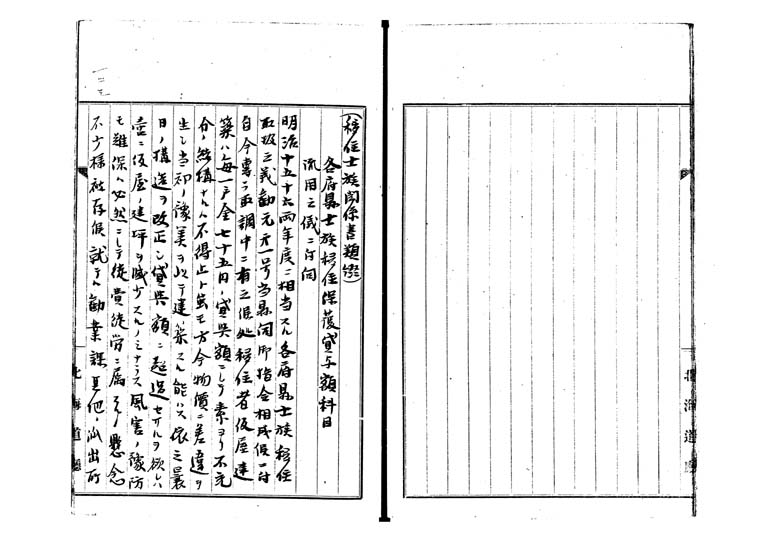 (移住士族関係書類綴)
各府県士族移住保護貸与額科目
流用之儀ニ付伺
明治十五十六両年度ニ相当スル各府県士族移住
取扱之義勧元第一号当県伺御指令相成候ニ付
自今専ラ取調中ニ有之候処移住者仮屋建
築ハ毎一戸金七十五円ノ貸与額ニシテ素ヨリ不充
分ノ結構ナルハ不得止ト雖モ方今物価ニ差違ヲ
生シ当初ノ予算ヲ以テ建築スル能ハス依之最
目ノ構造ヲ改正シ貸与額ニ超過セサルヲ欲シハ
壱ニ仮屋ノ建坪ヲ減少スルノミナラス風害ノ予防
モ難深ハ必然ニシテ徒費徒労ニ属スルノ懸念
不少様被存候就テハ勧業課員他ノ派出所
北海道庁
北海道庁